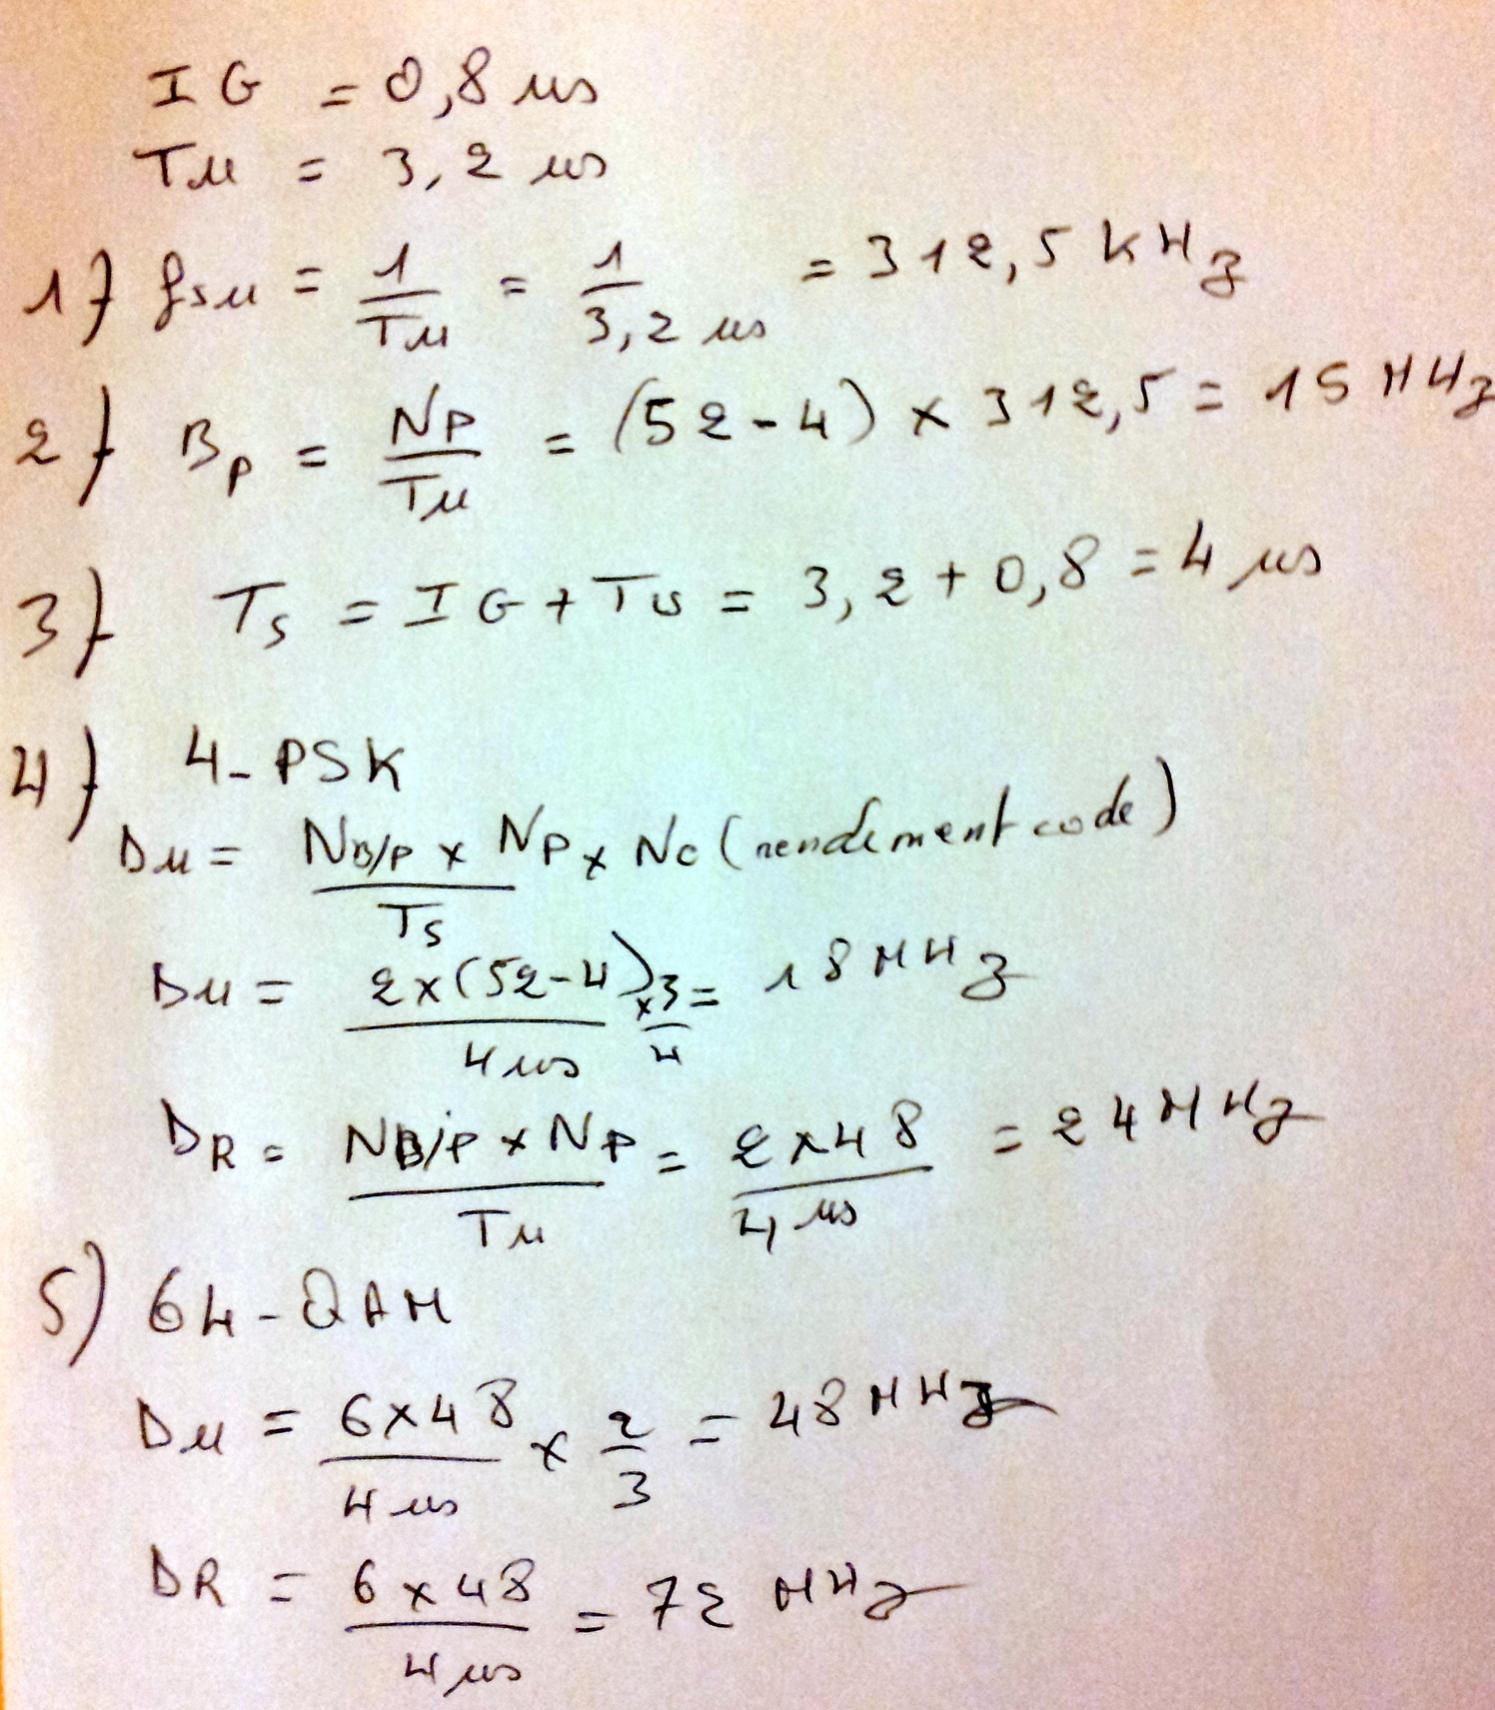 IG = 0,8 us
Tu = 3,2 us
1) fsu = 1/Tu = 1/3,2 us = 312,5 KHz
2) Bp = Np/Tu = (52-4) x 312,5 = 15 MHz
3) Ts = IG + Tu = 3,2 + 0,8 = 4 us
4) 4-PSK
Du = NB/P x Np/Ts x Nc (rendement code)
Du = 2x(52-4)/4us x 3/4 = 18 MHz
DR = NB/P x NP/Tu = 2x48/4 us = 24 MHz
5) 64-QAM
Du = 6x48/4 us x 2/3 = 48 MHz
DR = 6x48/4 us = 72 MHz